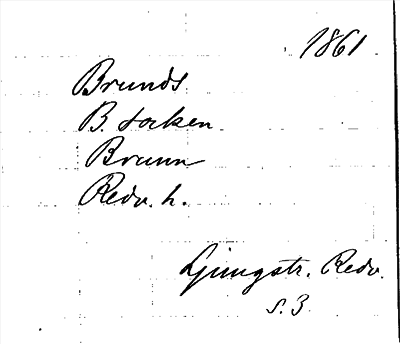 1861
Brunds
B. socken
Brunn
Redv. h.
Ljungstr. Redv.
s. 3